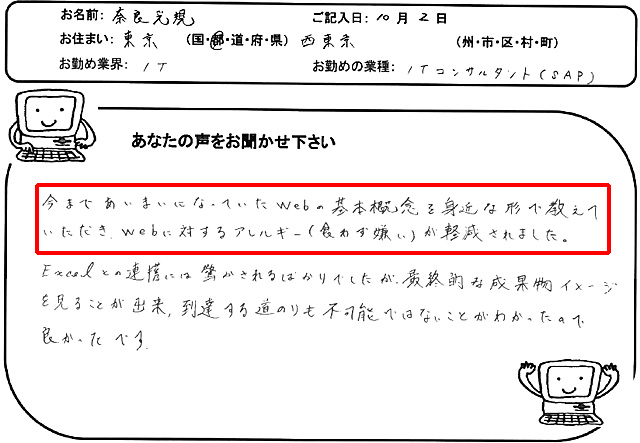 お名前: 奈良光規 ご記入日: 10月2日
お住まい: 東京 (国・都・道・府・県) 西東京 (州・市・区・村・町)
お勤め業界: IT お勤めの業種: ITコンサルタント(SAP)
あなたの声をお聞かせ下さい
今まであいまいになっていたWebの基本概念を身近な形で教えて
いただき、Webに対するアレルギー(食わず嫌い)が軽減されました。
Excelとの連携には驚かされるばかりでしたが、最終的な成果物イメージ
を見ることが出来、到達する道のりも不可能ではないことがわかったので
良かったです。